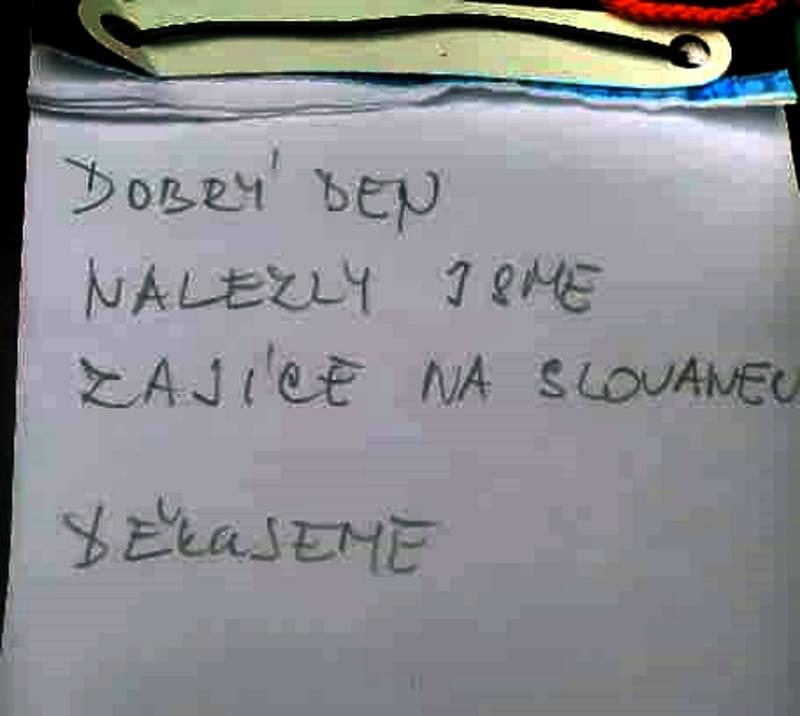 DOBRÝ DEN
NALEZLY JSME
ZAJÍCE NA SLOVANEC
DĚkaJEME